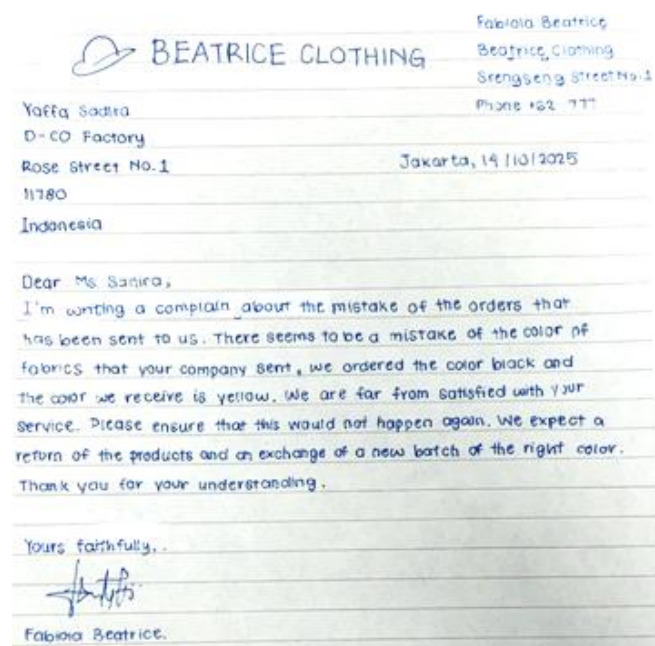 Fabiola Beatrice
BEATRICE CLOTHING
Beatrice Clothing
Srengseng Street No.1
Phone +62 777
Yaffa Sadira
D-CO Factory
Rose Street No.1
Jakarta, 14/10/2025
11780
Indonesia
Dear Ms. Sadira,
I'm writing a complain about the mistake of the orders that
has been sent to us. There seems to be a mistake of the color of
fabrics that your company sent, we ordered the color black and
the color we receive is yellow. We are far from satisfied with your
service. Please ensure that this would not happen again. We expect a
return of the products and an exchange of a new batch of the right color.
Thank you for your understanding.
Yours faithfully,.
Fabiola Beatrice.